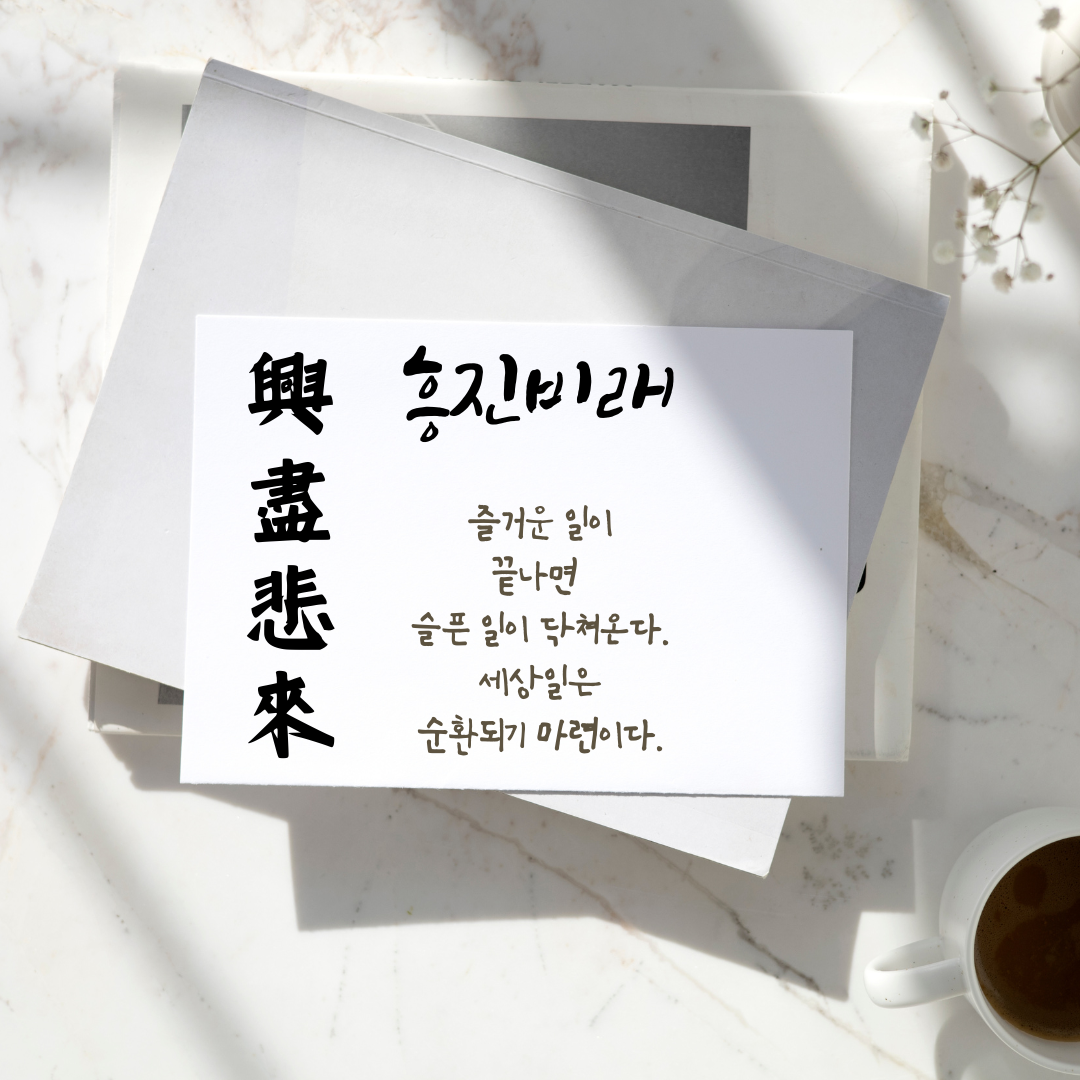 興
盡
悲
來
흥진비래
즐거운 일이
끝나면
슬픈 일이 닥쳐온다.
세상일은
순환되기 마련이다.